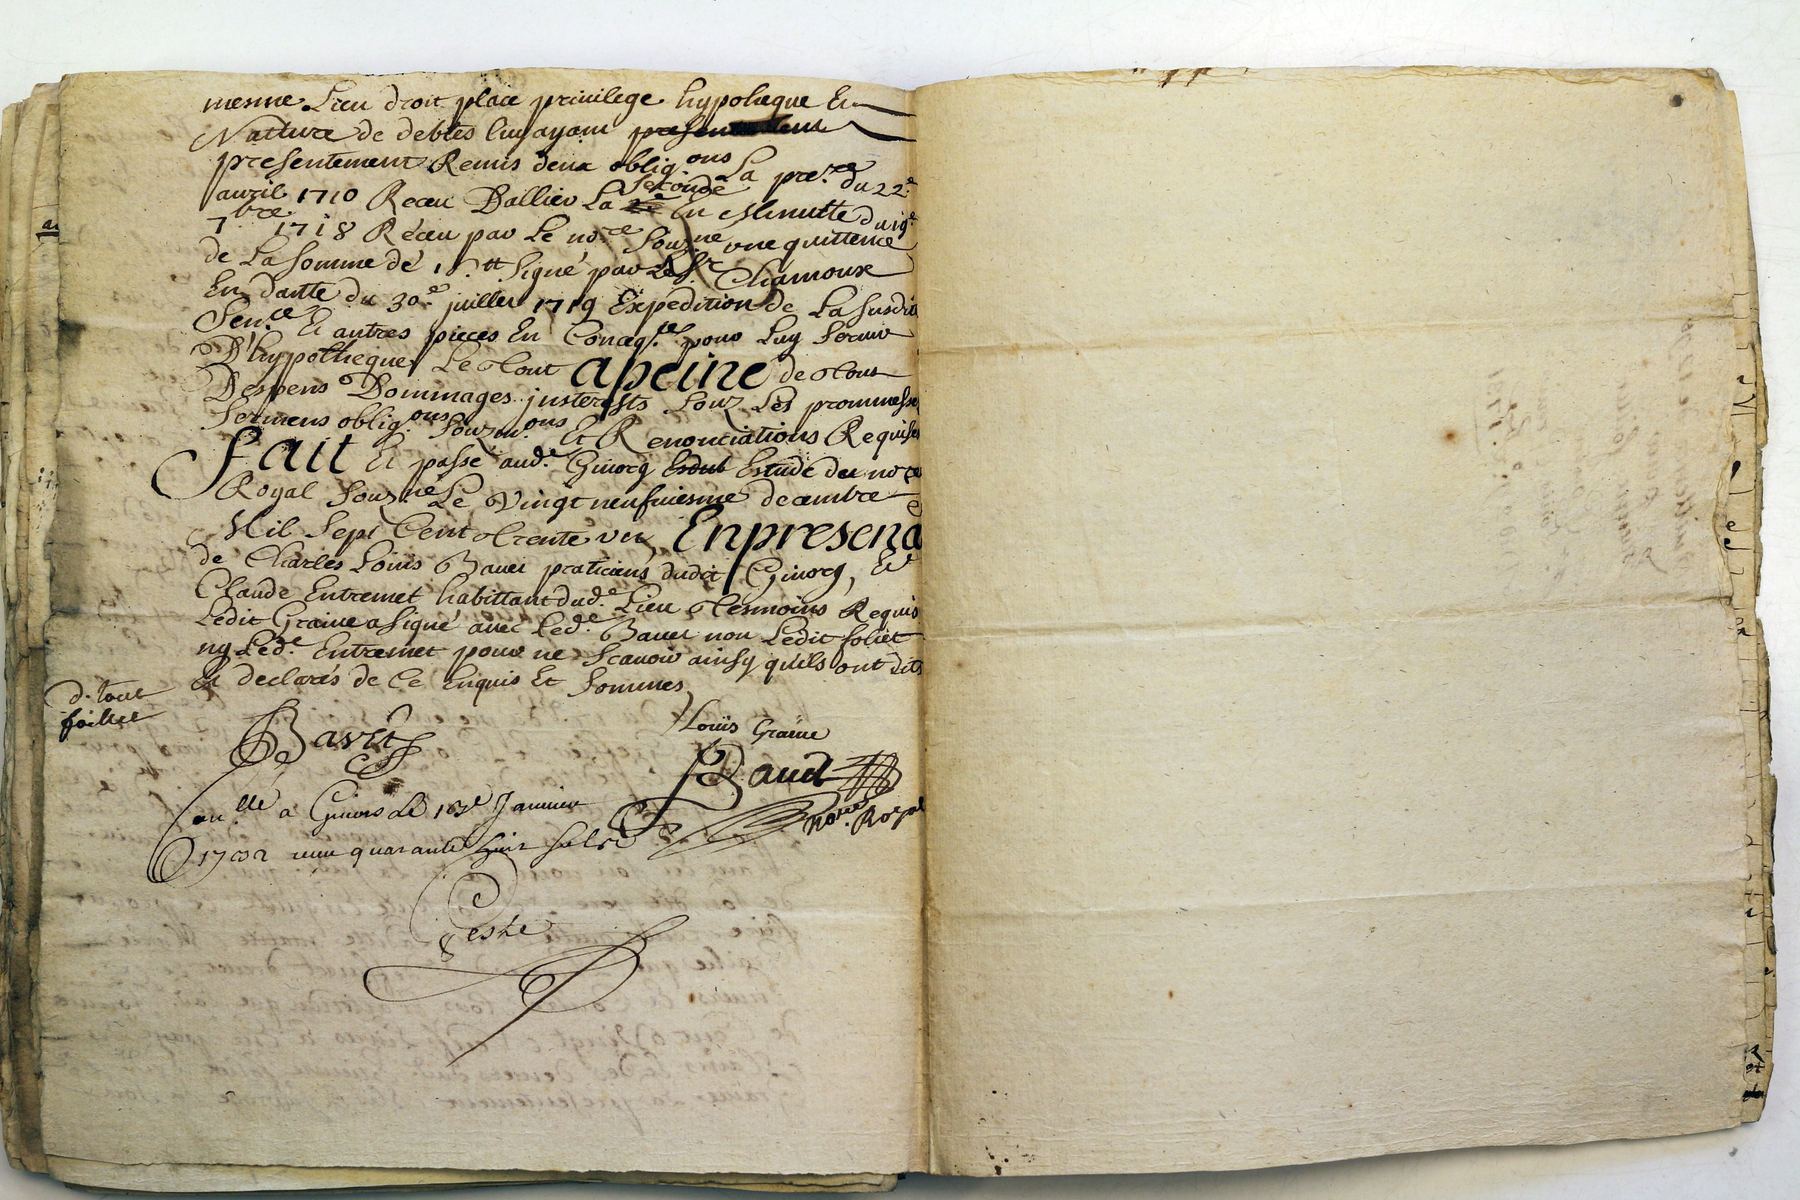 mesme Lieu droit place privilege hypoteque Et
Nature de debtes luy ayant
presentement Remis deux oblig.ons La pre.re du 22.e
avril 1710 Receu Dallier La seconde En Minutte du 19.e
7.bre 1718 Réceu par Le no.re souz.né une quittence
de La somme dé 1 tt signé par Le Sr Chamoux
En datte du 30.e juillet 1719 Expedition de La susditte
Sen.ce Et autres pieces En Conceq.ce pour Luy servir
D'hyppotheque Le tout apeine de tous
Despens Dommages jnterests souz Les promesses
sermens oblig.ons souzm.ons Et Renonciations Requises
fait Et passé aud.t Givorg Estude du no.re
Royal souz.né Le vingt neufuiesme decembre
Mil sept Cent trente un Enpresence
de Charles Louis Bavet praticiens dudit Givorg, Et
Claude Entremet habittant dud.t Lieu tesmoins Requis
Ledit Graine a signé avec Led.t Bavet non Ledit foliet
ny Led.t Entremet pour ne scavoir ainsy quils ont dits
Et declarés de Ce Enquis Et sommes
d. tout
Louis Graine
Bavet
Baud
No.re Royal
a Givors Le Janvier
quarante huit sols